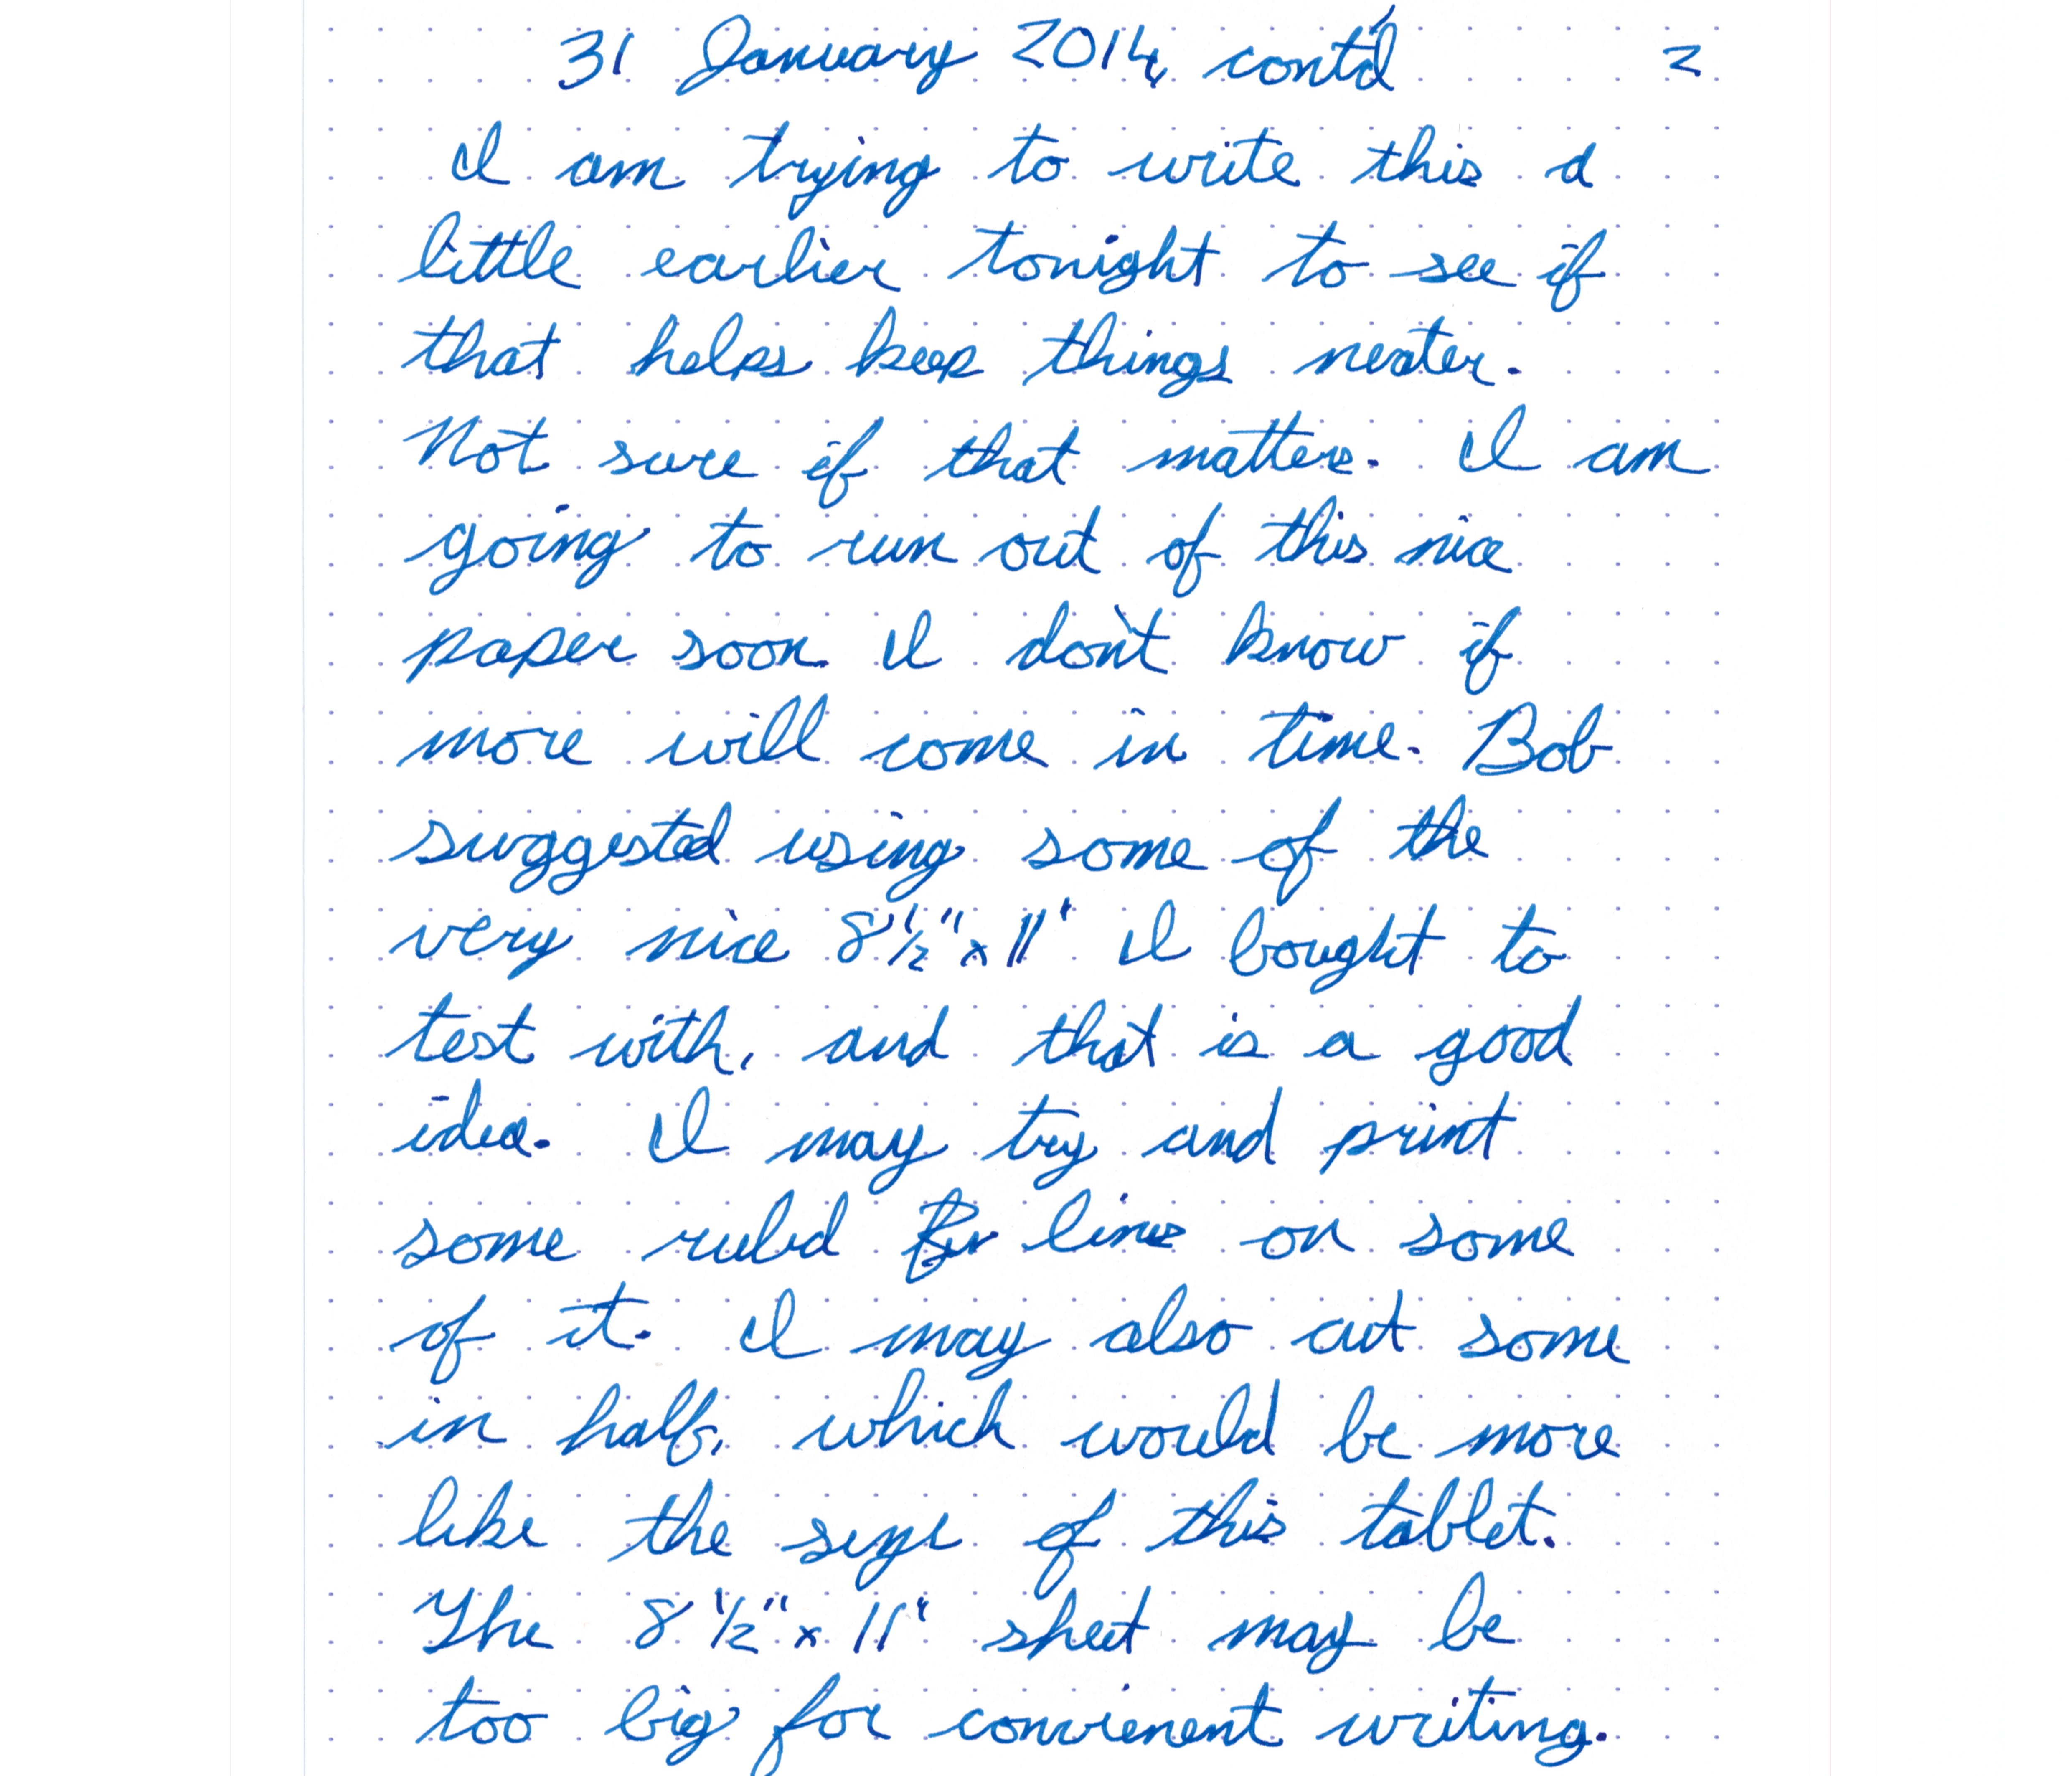 31 January 2014, cont'd 2
I am trying to write this a
little earlier tonight to see if
that helps keep things neater.
Not sure if that matters. I am
going to run out of this nice
paper soon. I don't know if
more will come in time. Bob
suggested using some of the
very nice 8 1/2" x 11' I bought to
test with, and that is a good
idea. I may try and print
some ruled lines on some
of it. I may also cut some
in half, which would be more
like the size of this tablet.
The 8 1/2" x 11' sheet may be
too big for convienent writing.